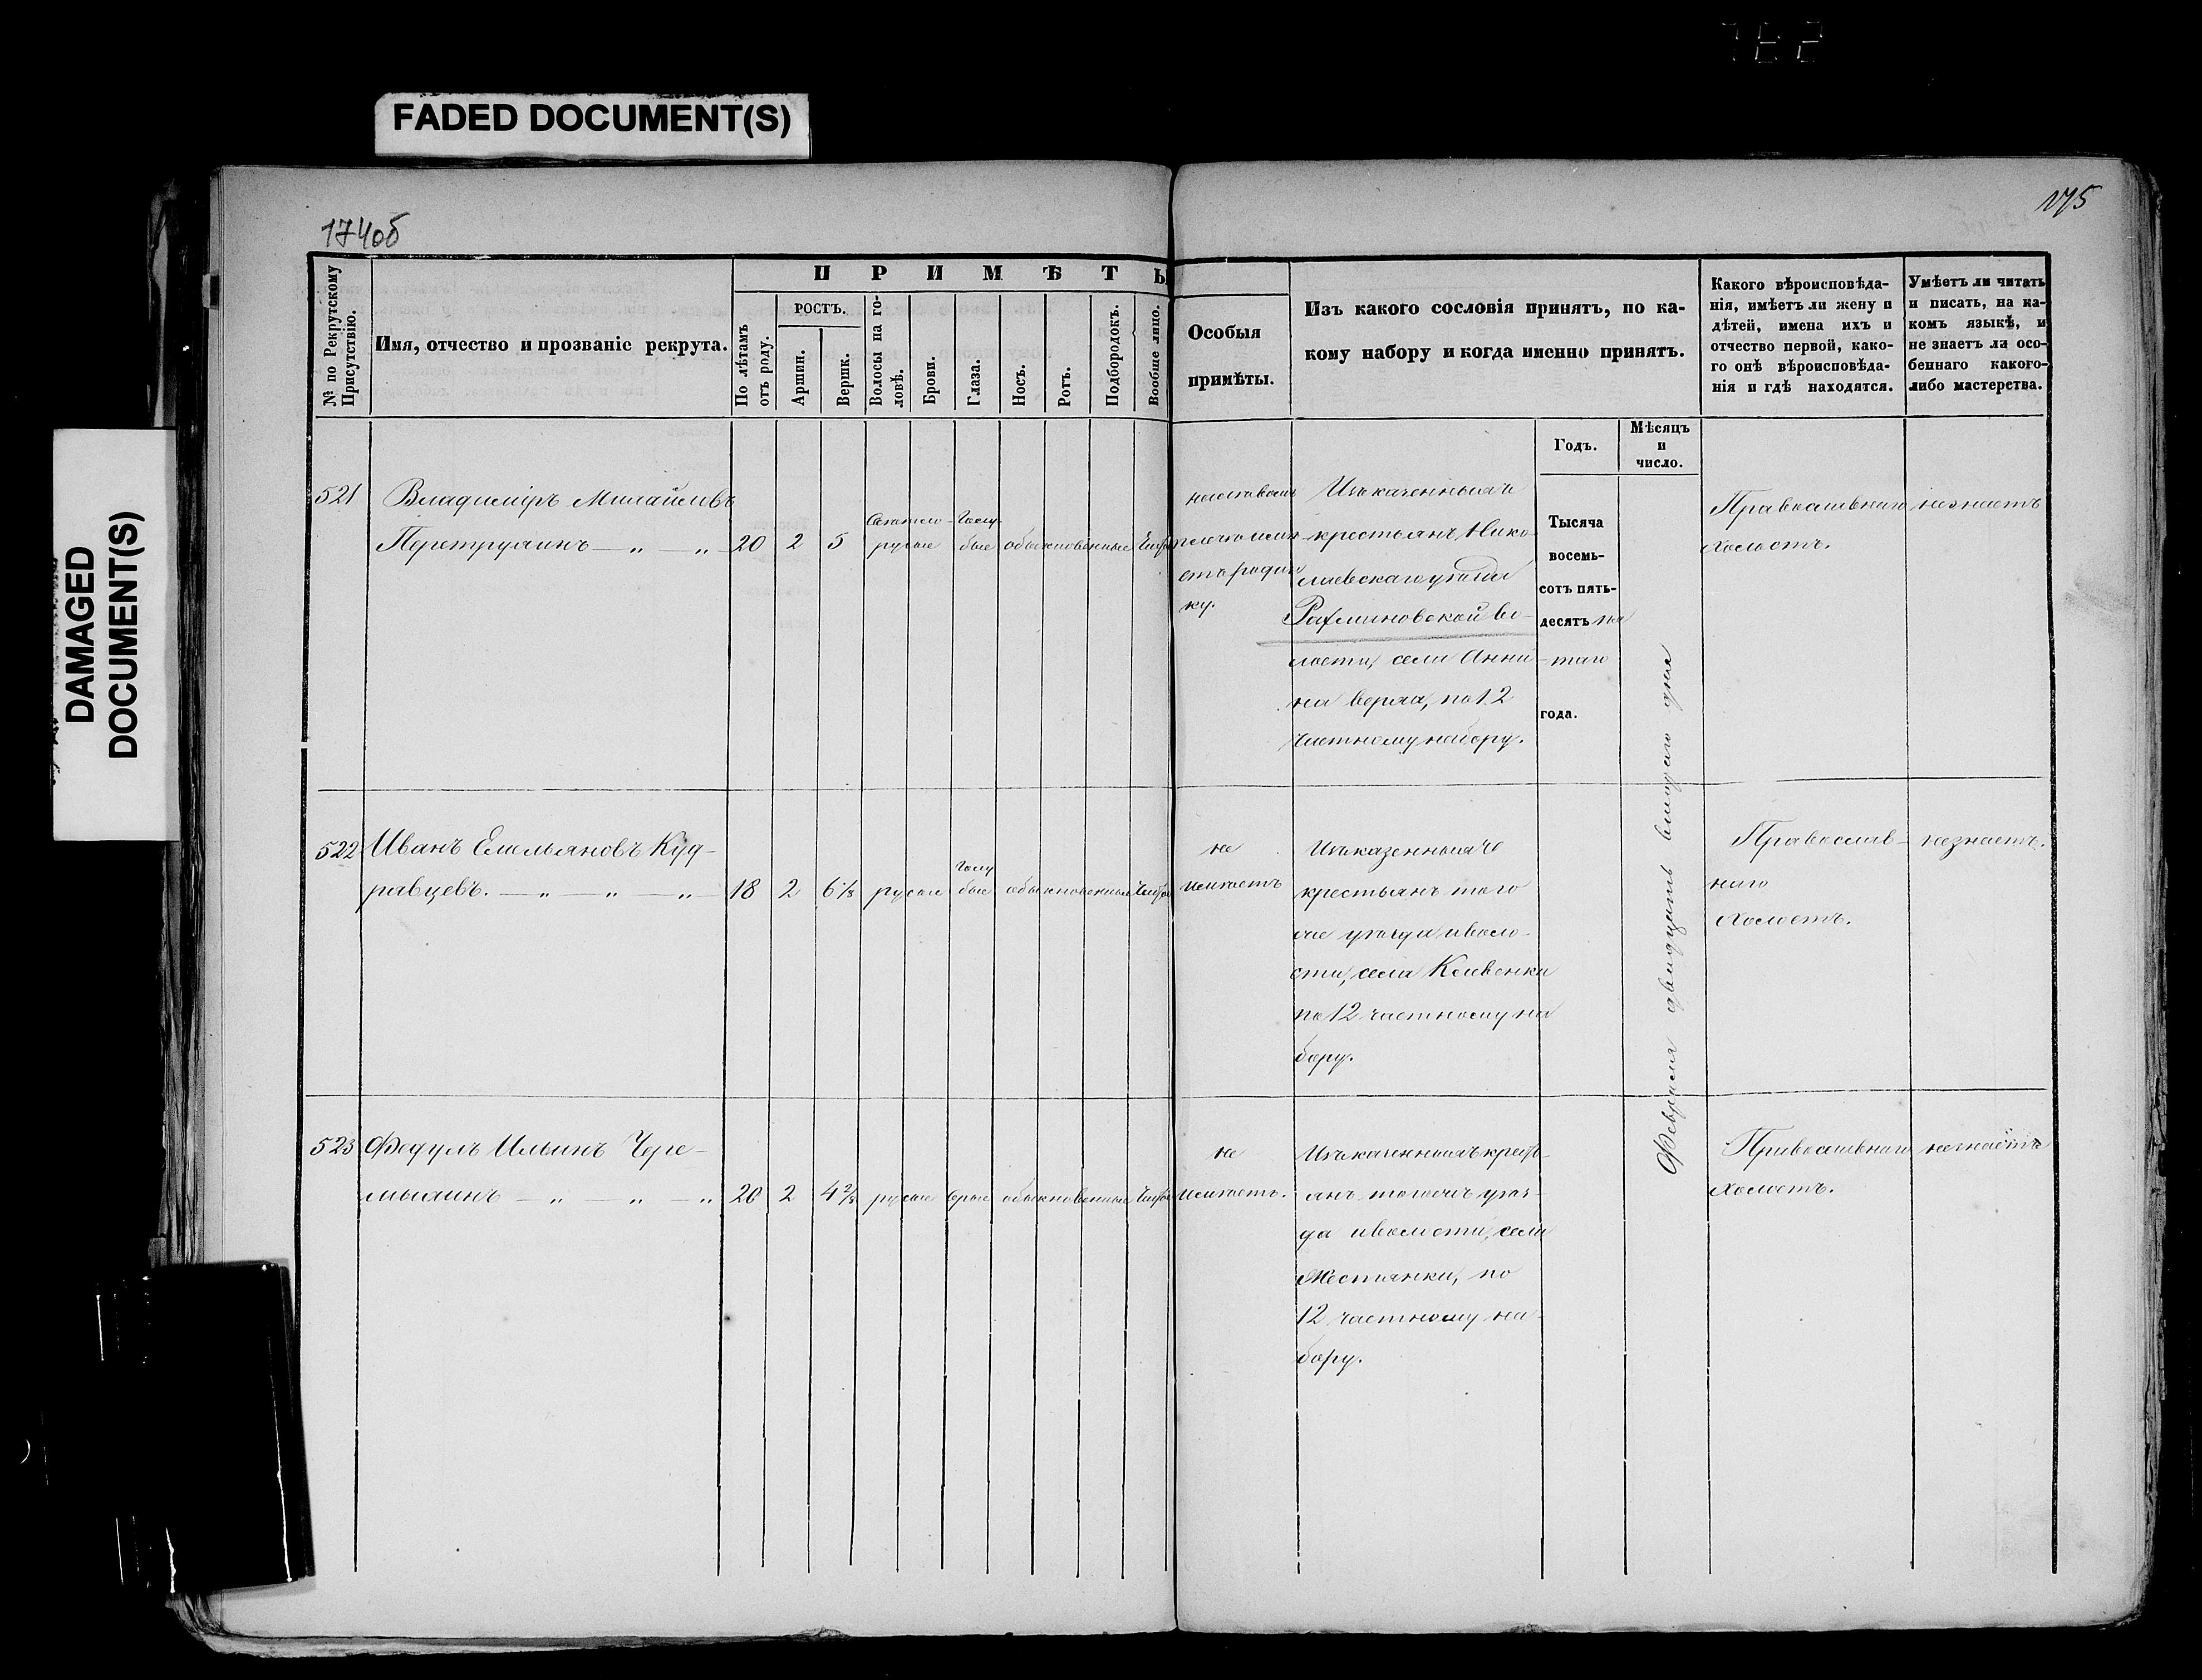 FADED DOCUMENT(S)
DAMAGED
DOCUMENT(S)
174об
175
№ по Рекрутскому
Присутствію.
Имя, отчество и прозваніе рекрута.
ПРИМѢТЫ
По лѣтамъ
отъ роду.
РОСТЪ.
Аршин.
Вершк.
Волосы на го-
ловѣ.
Брови.
Глаза.
Носъ.
Ротъ.
Подбородокъ.
Вообще лицо.
Особыя
примѣты.
Изъ какого сословія принятъ, по ка-
кому набору и когда именно принятъ.
Годъ.
Мѣсяцъ
и
число.
Какого вѣроисповѣда-
нія, имѣетъ ли жену и
дѣтей, имена ихъ и
отчество первой, како-
го онѣ вѣроисповѣда-
нія и гдѣ находятся.
Умѣетъ ли читать
и писать, на ка-
комъ языкѣ, и
не знаетъ ли осо-
беннаго какого-
либо мастерства.
521
Владиміръ
20 2 5
русые
Голу-
бые
обыкновенные
Изъ казенныхъ
крестьянъ Нико-
лаевскаго уѣзда
лости, села Анни
на верха, по 12
частному набору.
Тысяча
восемь-
сотъ пять-
десятъ пя
таго
года.
Февраля двадцать втораго дня
Православнаго
холостъ.
незнаетъ
522
Иванъ Емельяновъ Куд-
рявцевъ.
18 2
русые
Голу
бые
обыкновенные
не
имѣетъ
Изъ казенныхъ
крестьянъ того
же уѣзда и воло-
сти, села
по 12 частному на
бору.
Православ-
наго
холостъ.
незнаетъ.
523
Федулъ Ильинъ Чере-
20 2
русые
обыкновенные
не
имѣетъ.
Изъ казенныхъ кресть-
янъ того же уѣз-
да и волости, села
по
12 частному на-
бору.
Православнаго
холостъ.
незнаетъ